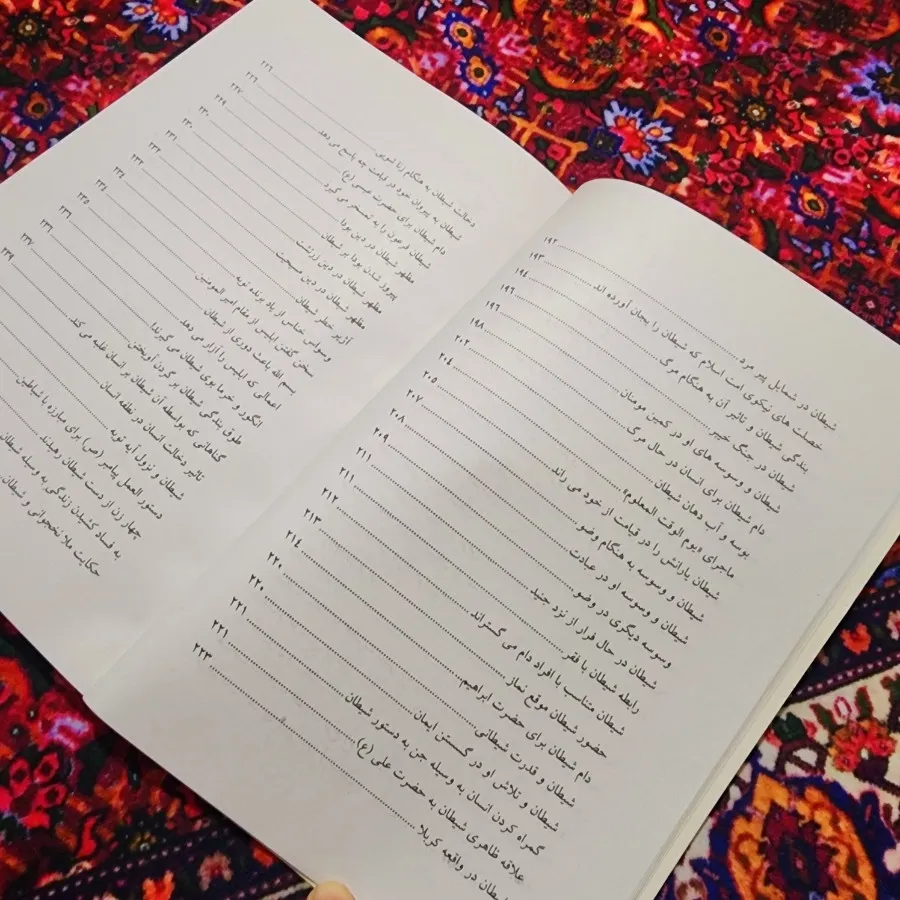 شیطان در شمایل پیر مرد ۱۹۲
خصلت های نیکوی امت اسلام که شیطان را بجان آورده اند ۱۹۳
بندگی شیطان و تاثیر آن به هنگام مرگ ۱۹۴
شیطان در جنگ خیبر ۱۹۶
شیطان و وسوسه های او در کمین مومنان ۱۹۶
دام شیطان برای انسان در حال مرگ ۱۹۸
بوسه و آب دهان شیطان ۲۰۲
ماجرای «یوم الوقت المعلوم» ۲۰۴
شیطان یارانش را در قیامت از خود می راند ۲۰۵
شیطان و وسوسه به هنگام وضو ۲۰۷
شیطان و وسوسه او در عبادت ۲۰۸
وسوسه دیگری در وضو ۲۰۹
شیطان در حال فرار از نزد جنید ۲۱۱
رابطه شیطان با فقر ۲۱۱
شیطان متناسب با افراد دام می گستراند ۲۱۲
حضور شیطان موقع نماز ۲۱۳
دام شیطان برای حضرت ابراهیم ۲۱۴
شیطان و قدرت شیطانی ۲۲۰
شیطان و تلاش او در گسستن ایمان ۲۲۰
گمراه کردن انسان به وسیله جن به دستور شیطان ۲۲۱
علاقه ظاهری شیطان به حضرت علی (ع) ۲۲۱
شیطان در واقعه کربلا ۲۲۳
دخالت شیطان به هنگام زناشویی ۲۲۶
شیطان به پیروان خود در قیامت چه پاسخ می دهد ۲۲۶
دام شیطان برای حضرت عیسی (ع) ۲۲۷
شیطان فرعون را به تمسخر می گیرد ۲۲۹
مظهر شیطان در دین بودا ۲۳۰
پیروز شدن بودا بر شیطان ۲۳۰
مظهر شیطان در دین زرتشت ۲۳۱
مظهر شیطان در دین مسیحیت ۲۳۲
آژیر خطر شیطان ۲۳۲
وسواس خناس از یاد برنده توبه ۲۳۴
سخن گفتن ابلیس از مقام امیر المومنین
بسم الله باعث دوری از شیطان ۲۳۵
اعمالی که ابلیس را آزار می دهد ۲۳۶
انگور و خرما بوی شیطان می گیرند! ۲۳۶
طوق بندگی شیطان بر گردن آویختن ۲۳۷
گناهانی که بواسطه آن شیطان بر انسان غلبه می کند ۲۳۹
تاثیر دخالت انسان در نطفه انسان
شیطان و نزول آیه توبه
دستور العمل پیامبر (ص) برای مبارزه با شیاطین
چهار زن از دست شیطان رهیدند
به فساد کشیدن زندگی به وسیله شیطان
حکایت ملا نخجوانی و شیطان